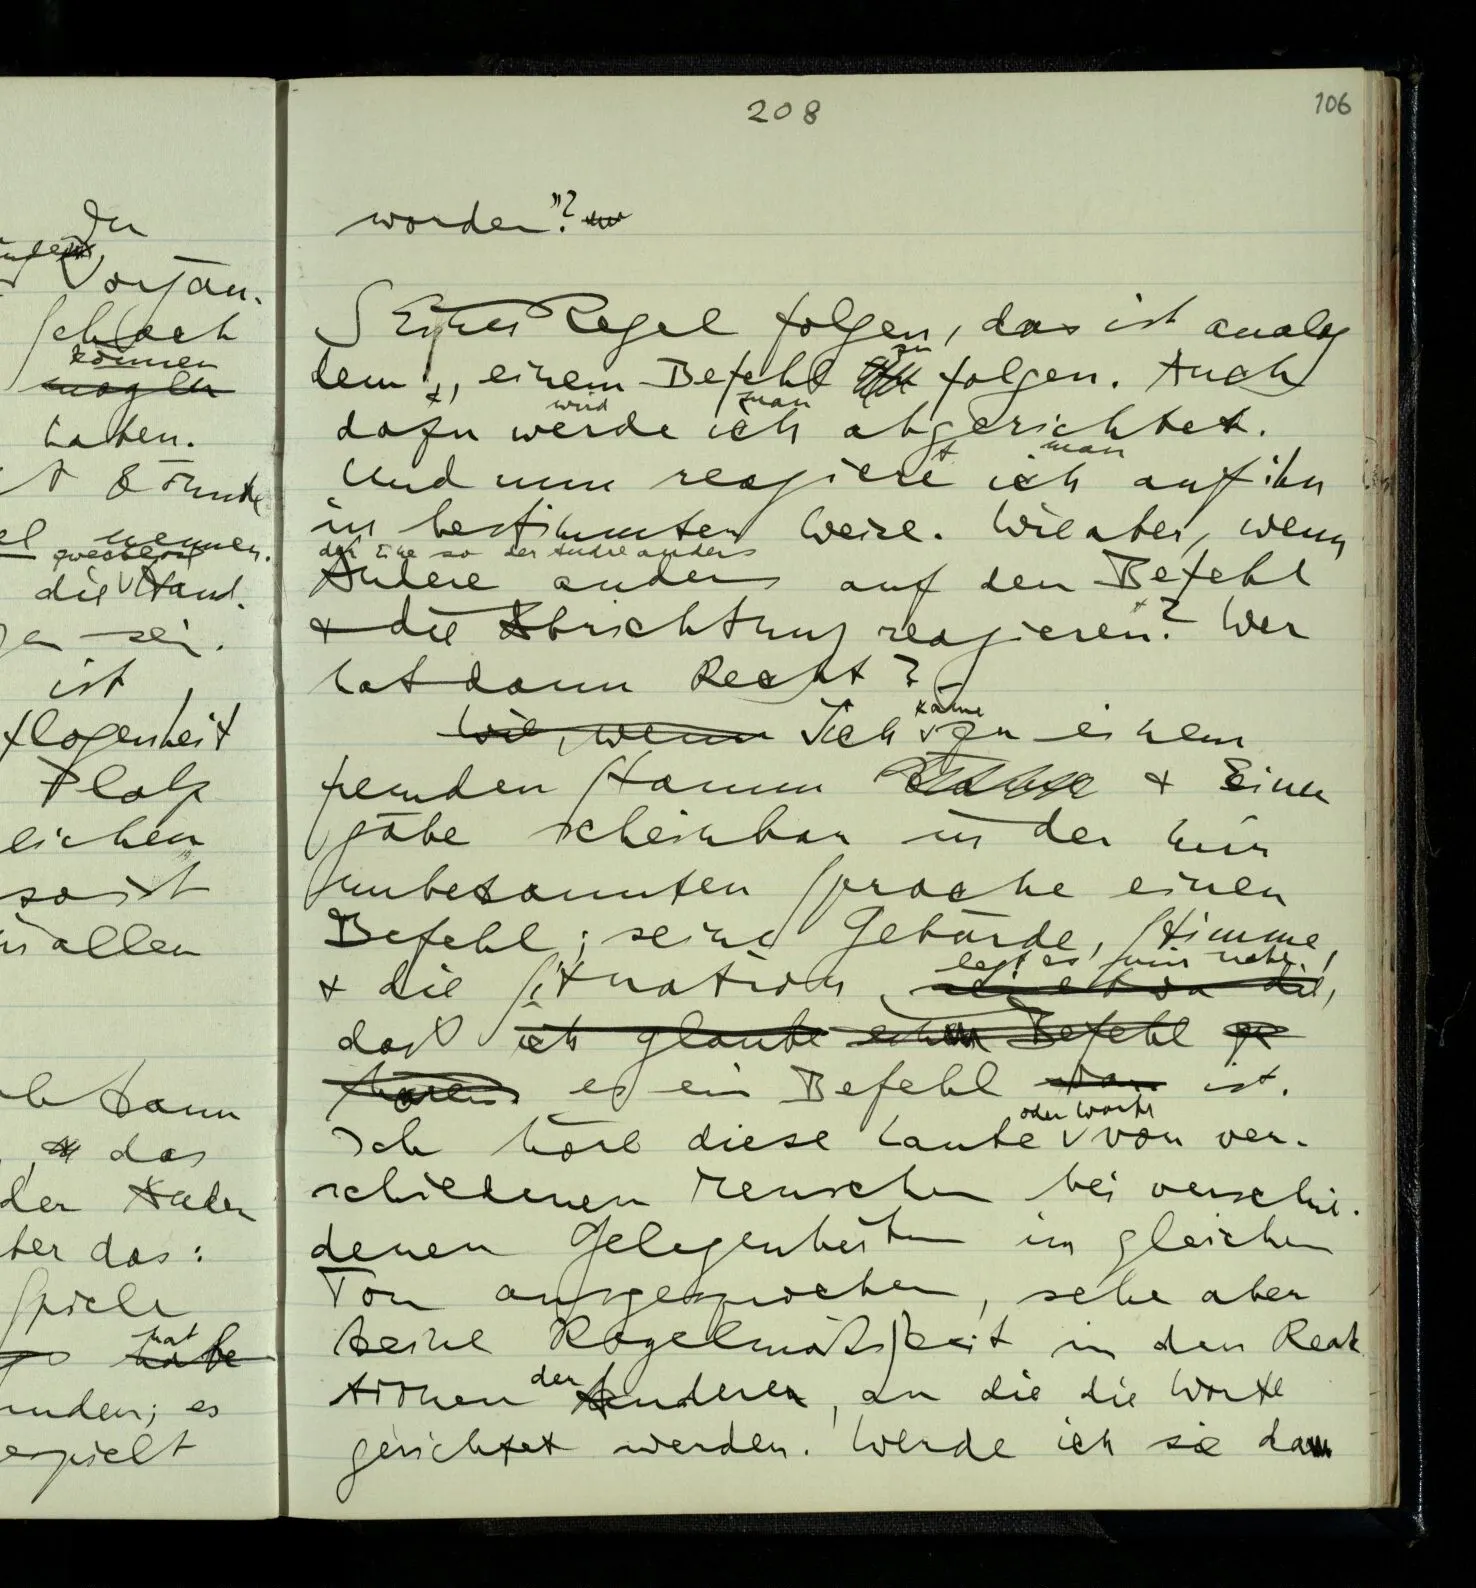 208
106
worden"?
S Einer Regel folgen, das ist analog
dem, einem Befehl zu folgen. Auch
wird man
dazu werde ich abgerichtet.
man
Und nun reagiert ich auf ihn
in bestimmter Weise. Wie aber, wenn
der Eine so der Andre anders
Andere anders auf den Befehl
+ die Abrichtung reagieren? Wer
hat dann Recht?
käme
Wie, wenn Ich zu einem
fremden Stamm + Einer
gäbe scheinbar in der mir
unbekannten Sprache einen
Befehl; seine Gebärde, Stimme,
legt es mir nahe,
+ die Situation, die,
daß ich glaube einen Befehl zu
hören es ein Befehl ist.
oder Worte
Ich höre diese Laute von ver-
schiedenen Menschen bei verschie-
denen Gelegenheiten im gleichen
Ton ausgesprochen, sehe aber
keine Regelmäßigkeit in den Reak
tionen der Anderen, an die die Worte
gerichtet werden. Werde ich sie dann
der
Vorgän-
schach
können
möglich
haben.
könnte
nennen.
die Hand-
sei.
ist,
flogenheit
Platz
lichen
so ist
in allen
kann
, das
der Ander
ber das:
Spiele
hat
habe
unden; es
espielt